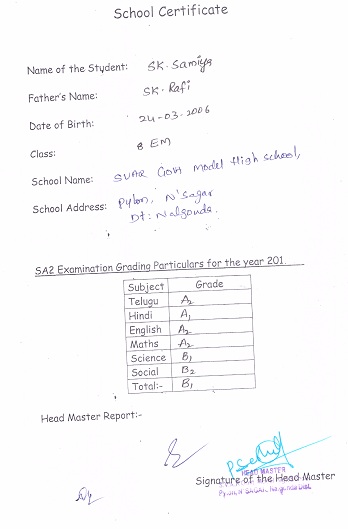 School Certificate
Name of the Student: SK. Samiya
Father's Name: SK. Rafi
Date of Birth: 24-03-2006
Class: 8 EM
School Name: SVAR Govt Model High school,
School Address: Pylon, N'Sagar
Dt: Nalgonda.
SA2 Examination Grading Particulars for the year 201
Subject Grade
Telugu A2
Hindi A1
English A2
Maths A2
Science B1
Social B2
Total:- B1
Head Master Report:-
HEAD MASTER
Signature of the Head Master